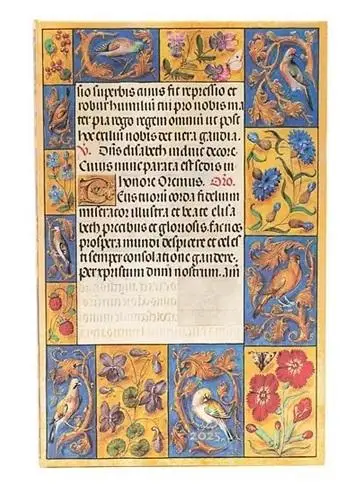 sio superbis cuius fit repressio et
robur humiliū tu pro nobis ma
ter pia rogo regem omniū ut post
hoc exiliū nobis det vera gaudia.
V. Dn̄s elisabeth induit decore.
Cuius nunc parata est sedis in
honore Oremus. Oro.
Deus tuorū corda fidelium
miserator illustra et beate elisa
beth precibus et gloriosis. fac nos
prospera mundi despicere et celes
ti semper consolatione gaudere.
Per xpristum dn̄m nostrum. Am̄
2025